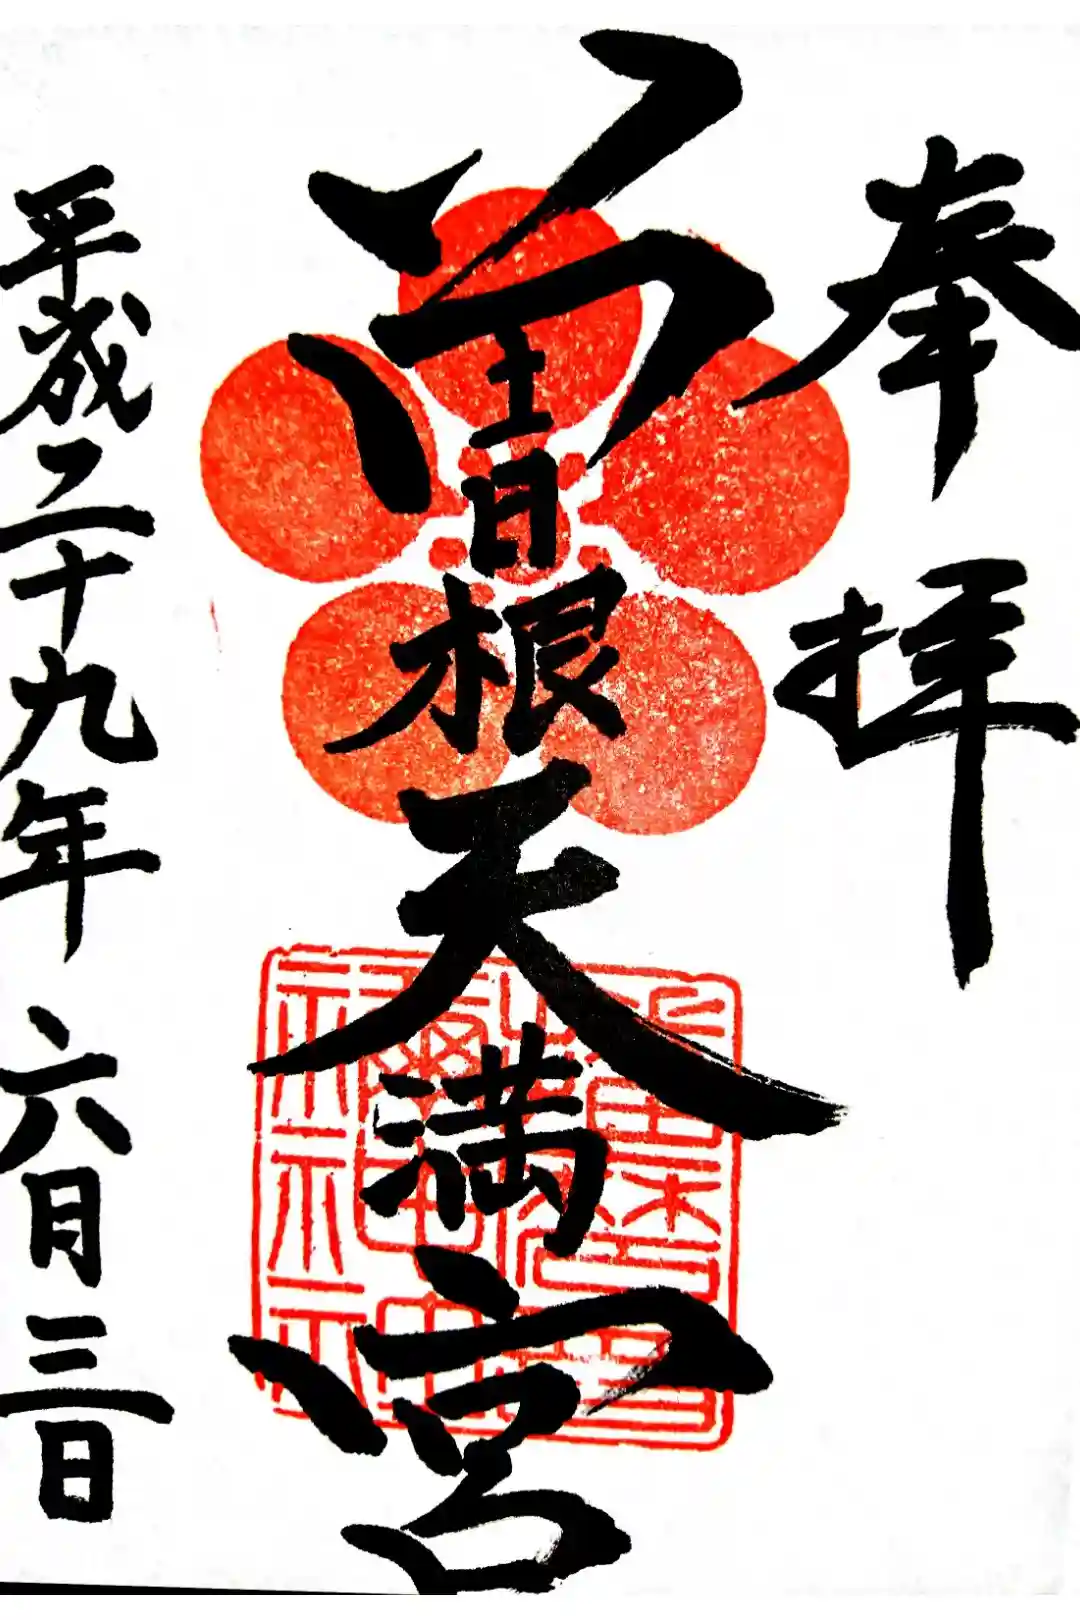 奉拝
曽根天満宮
平成二十九年六月三日